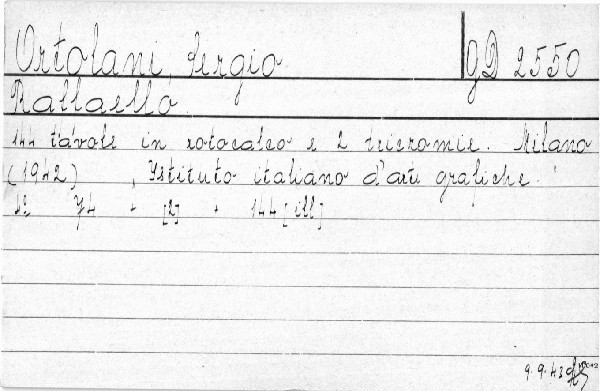 Ortolani, Sergio. GD 2550
Raffaello.
144 tavole in rotocalco e 2 tricromie. Milano
(1942), Istituto italiano d'arti grafiche.
4º 74 + [2] + 144 [ill]
9.9.43